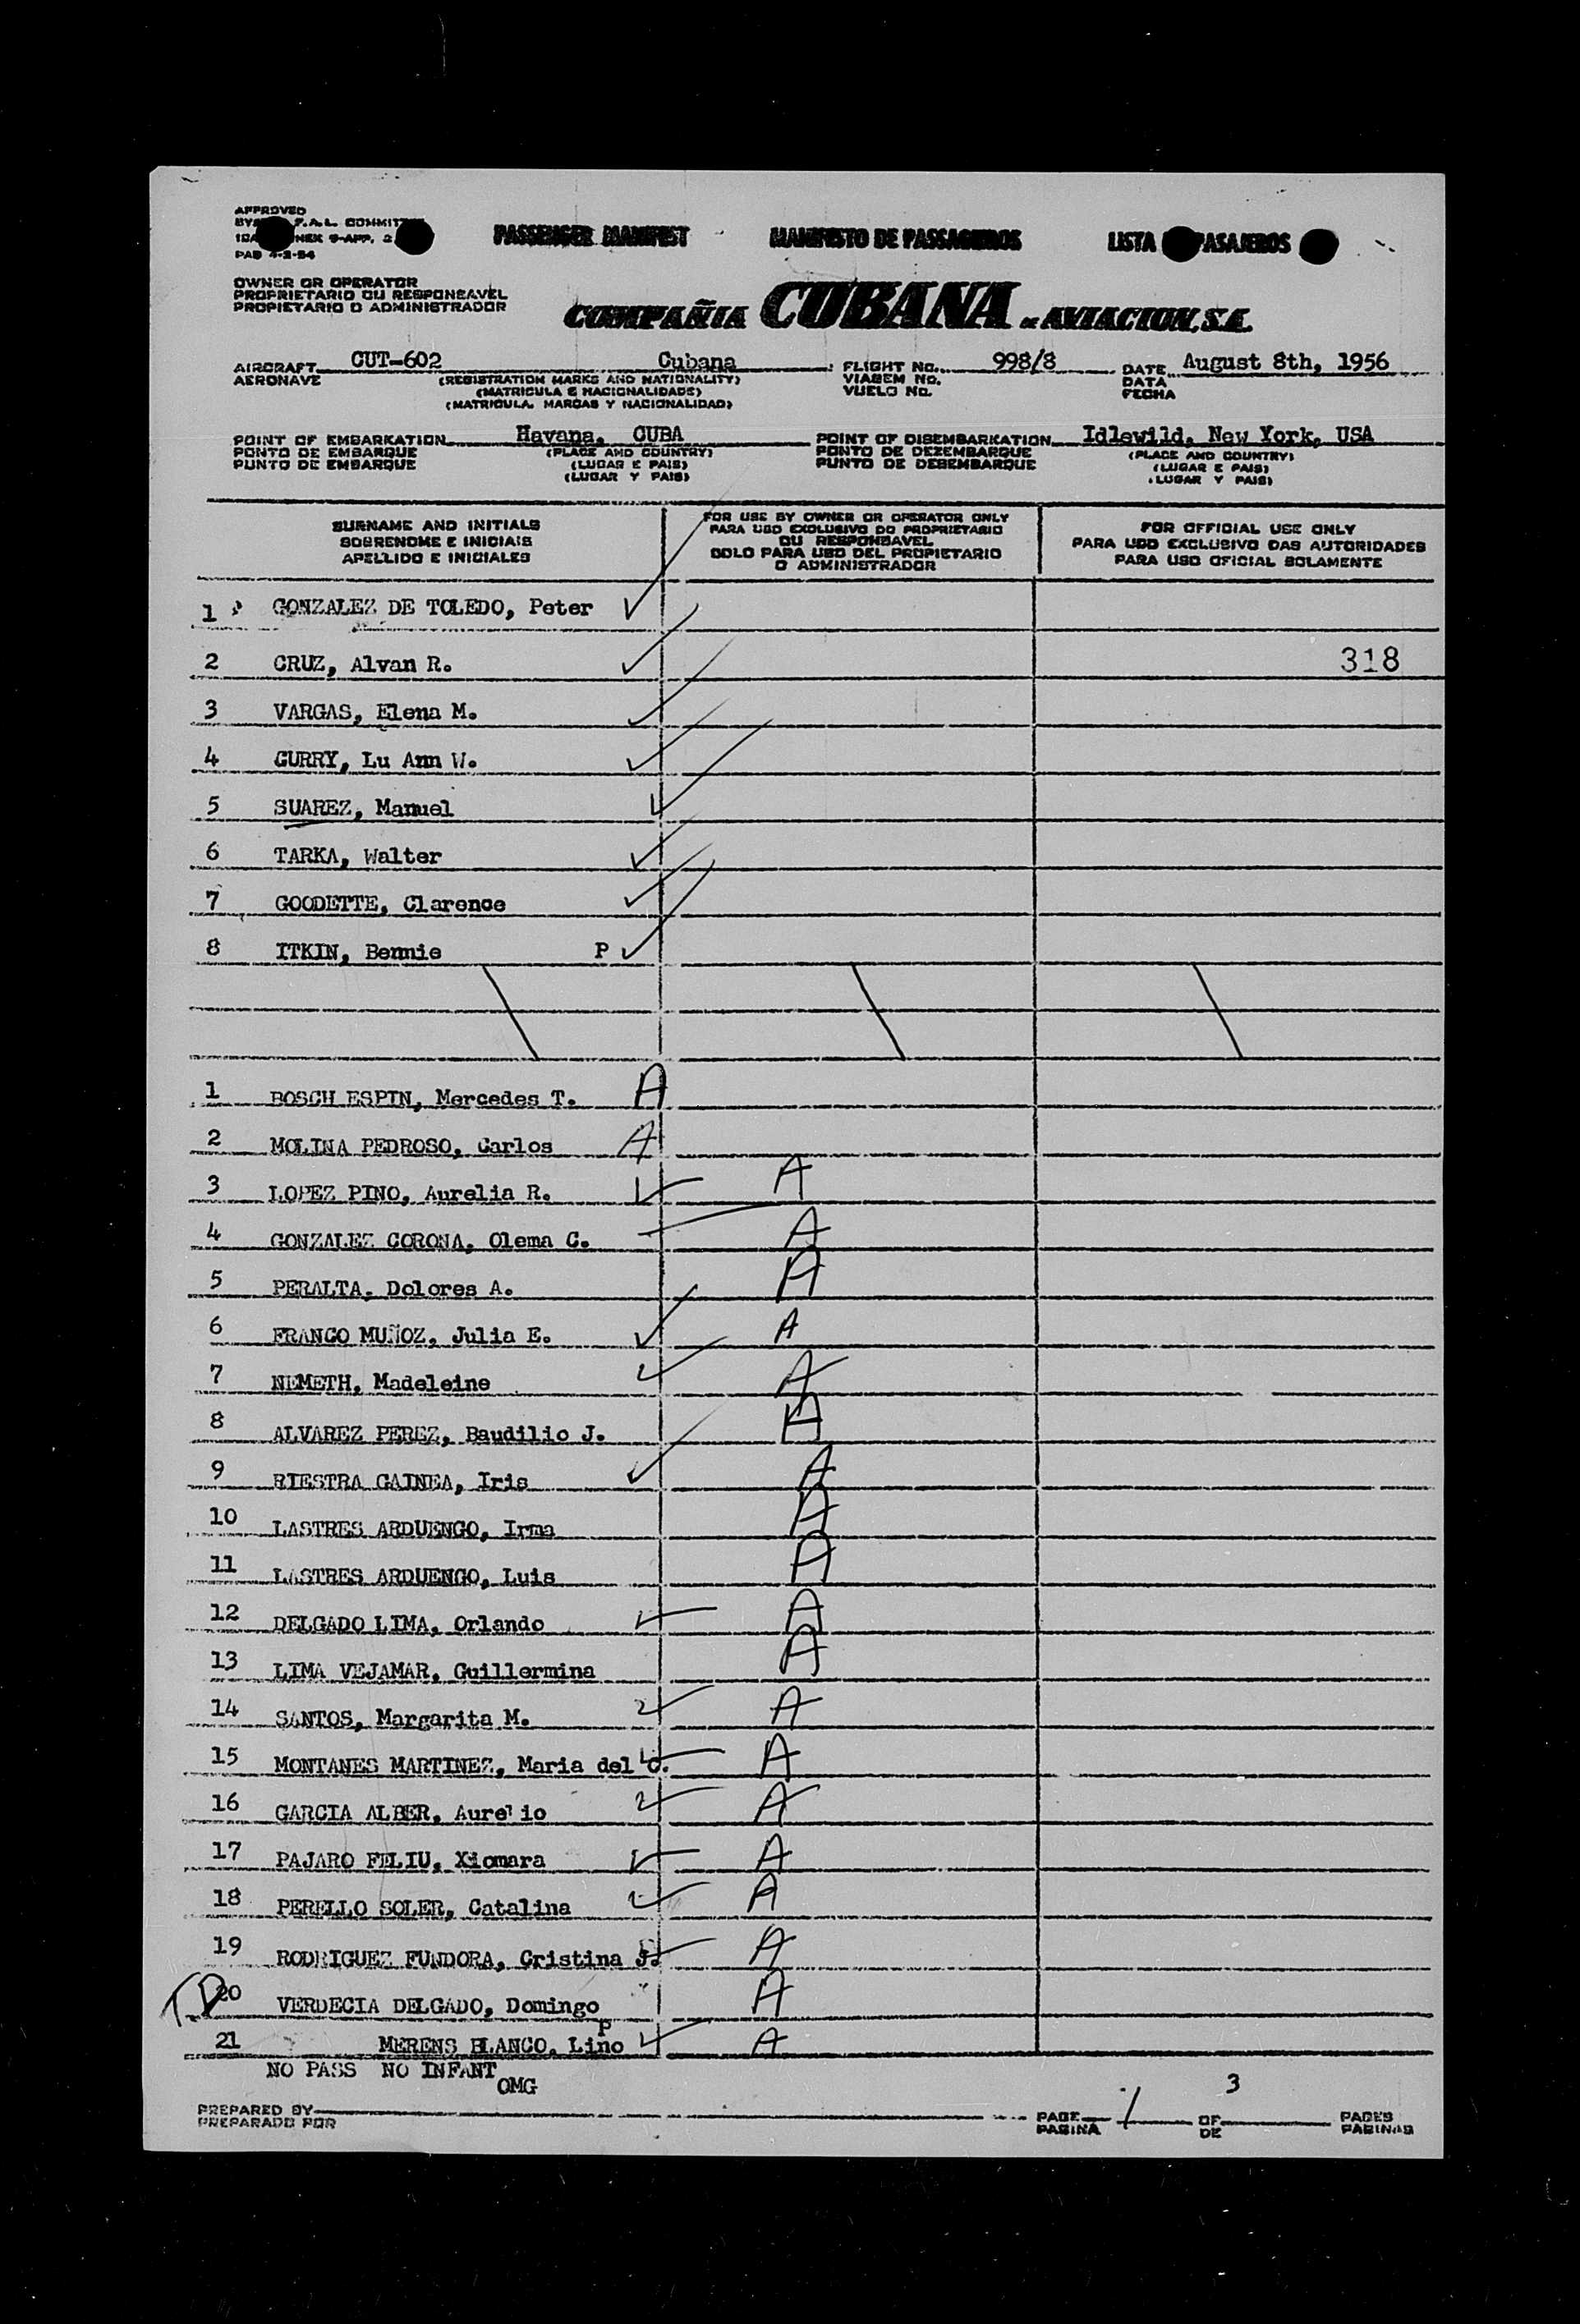 APPROVED
BY F.A.L. COMMITTEE
NEX 9-APP. 2
PAB 4-2-54
PASSENGER MANIFEST MANIFISTO DE PASSAGIEROS LISTA PASAJEROS
OWNER OR OPERATOR
PROPRIETARIO OU RESPONSAVEL
PROPIETARIO O ADMINISTRADOR
COMPAÑIA CUBANA DE AVIACION, S.A.
AIRCRAFT CUT-602 Cubana FLIGHT No. 998/8 DATE August 8th, 1956
AERONAVE (REGISTRATION MARKS AND NATIONALITY) VIAGEM No. DATA
(MATRICULA E NACIONALIDADE) VUELO No. FECHA
(MATRICULA, MARCAS Y NACIONALIDAD)
POINT OF EMBARKATION Havana, CUBA POINT OF DISEMBARKATION Idlewild, New York, USA
PONTO DE EMBARQUE (PLACE AND COUNTRY) PONTO DE DEZEMBARQUE (PLACE AND COUNTRY)
PUNTO DE EMBARQUE (LUGAR E PAIS) PUNTO DE DESEMBARQUE (LUGAR E PAIS)
(LUGAR Y PAIS) (LUGAR Y PAIS)
SURNAME AND INITIALS
SOBRENOME E INICIAIS
APELLIDO E INICIALES
FOR USE BY OWNER OR OPERATOR ONLY
PARA USO EXCLUSIVO DO PROPRIETARIO
OU RESPONSAVEL
SOLO PARA USO DEL PROPIETARIO
O ADMINISTRADOR
FOR OFFICIAL USE ONLY
PARA USO EXCLUSIVO DAS AUTORIDADES
PARA USO OFICIAL SOLAMENTE
1 GONZALEZ DE TOLEDO, Peter
2 CRUZ, Alvan R. 318
3 VARGAS, Elena M.
4 GURRY, Lu Ann W.
5 SUAREZ, Manuel
6 TARKA, Walter
7 GOODETTE, Clarence
8 ITKIN, Bennie P
1 BOSCH ESPIN, Mercedes T. A
2 MOLINA PEDROSO, Carlos A
3 LOPEZ PINO, Aurelia R. A
4 GONZALEZ CORONA, Olema C. A
5 PERALTA, Dolores A. A
6 FRANCO MUÑOZ, Julia E. A
7 NEMETH, Madeleine A
8 ALVAREZ PEREZ, Baudilio J. A
9 RIESTRA GAINEA, Iris A
10 LASTRES ARDUENGO, Irma A
11 LASTRES ARDUENGO, Luis A
12 DELGADO LIMA, Orlando A
13 LIMA VEJAMAR, Guillermina A
14 SANTOS, Margarita M. A
15 MONTANES MARTINEZ, Maria del C. A
16 GARCIA ALBER, Aurelio A
17 PAJARO FELIU, Xiomara A
18 PERELLO SOLER, Catalina A
19 RODRIGUEZ FUNDORA, Cristina J. A
20 VERDECIA DELGADO, Domingo A
P
21 MERENS BLANCO, Lino A
NO PASS NO INFANT
OMG
PREPARED BY PAGE 1 OF 3 PAGES
PREPARADO POR PAGINA DE PAGINAS